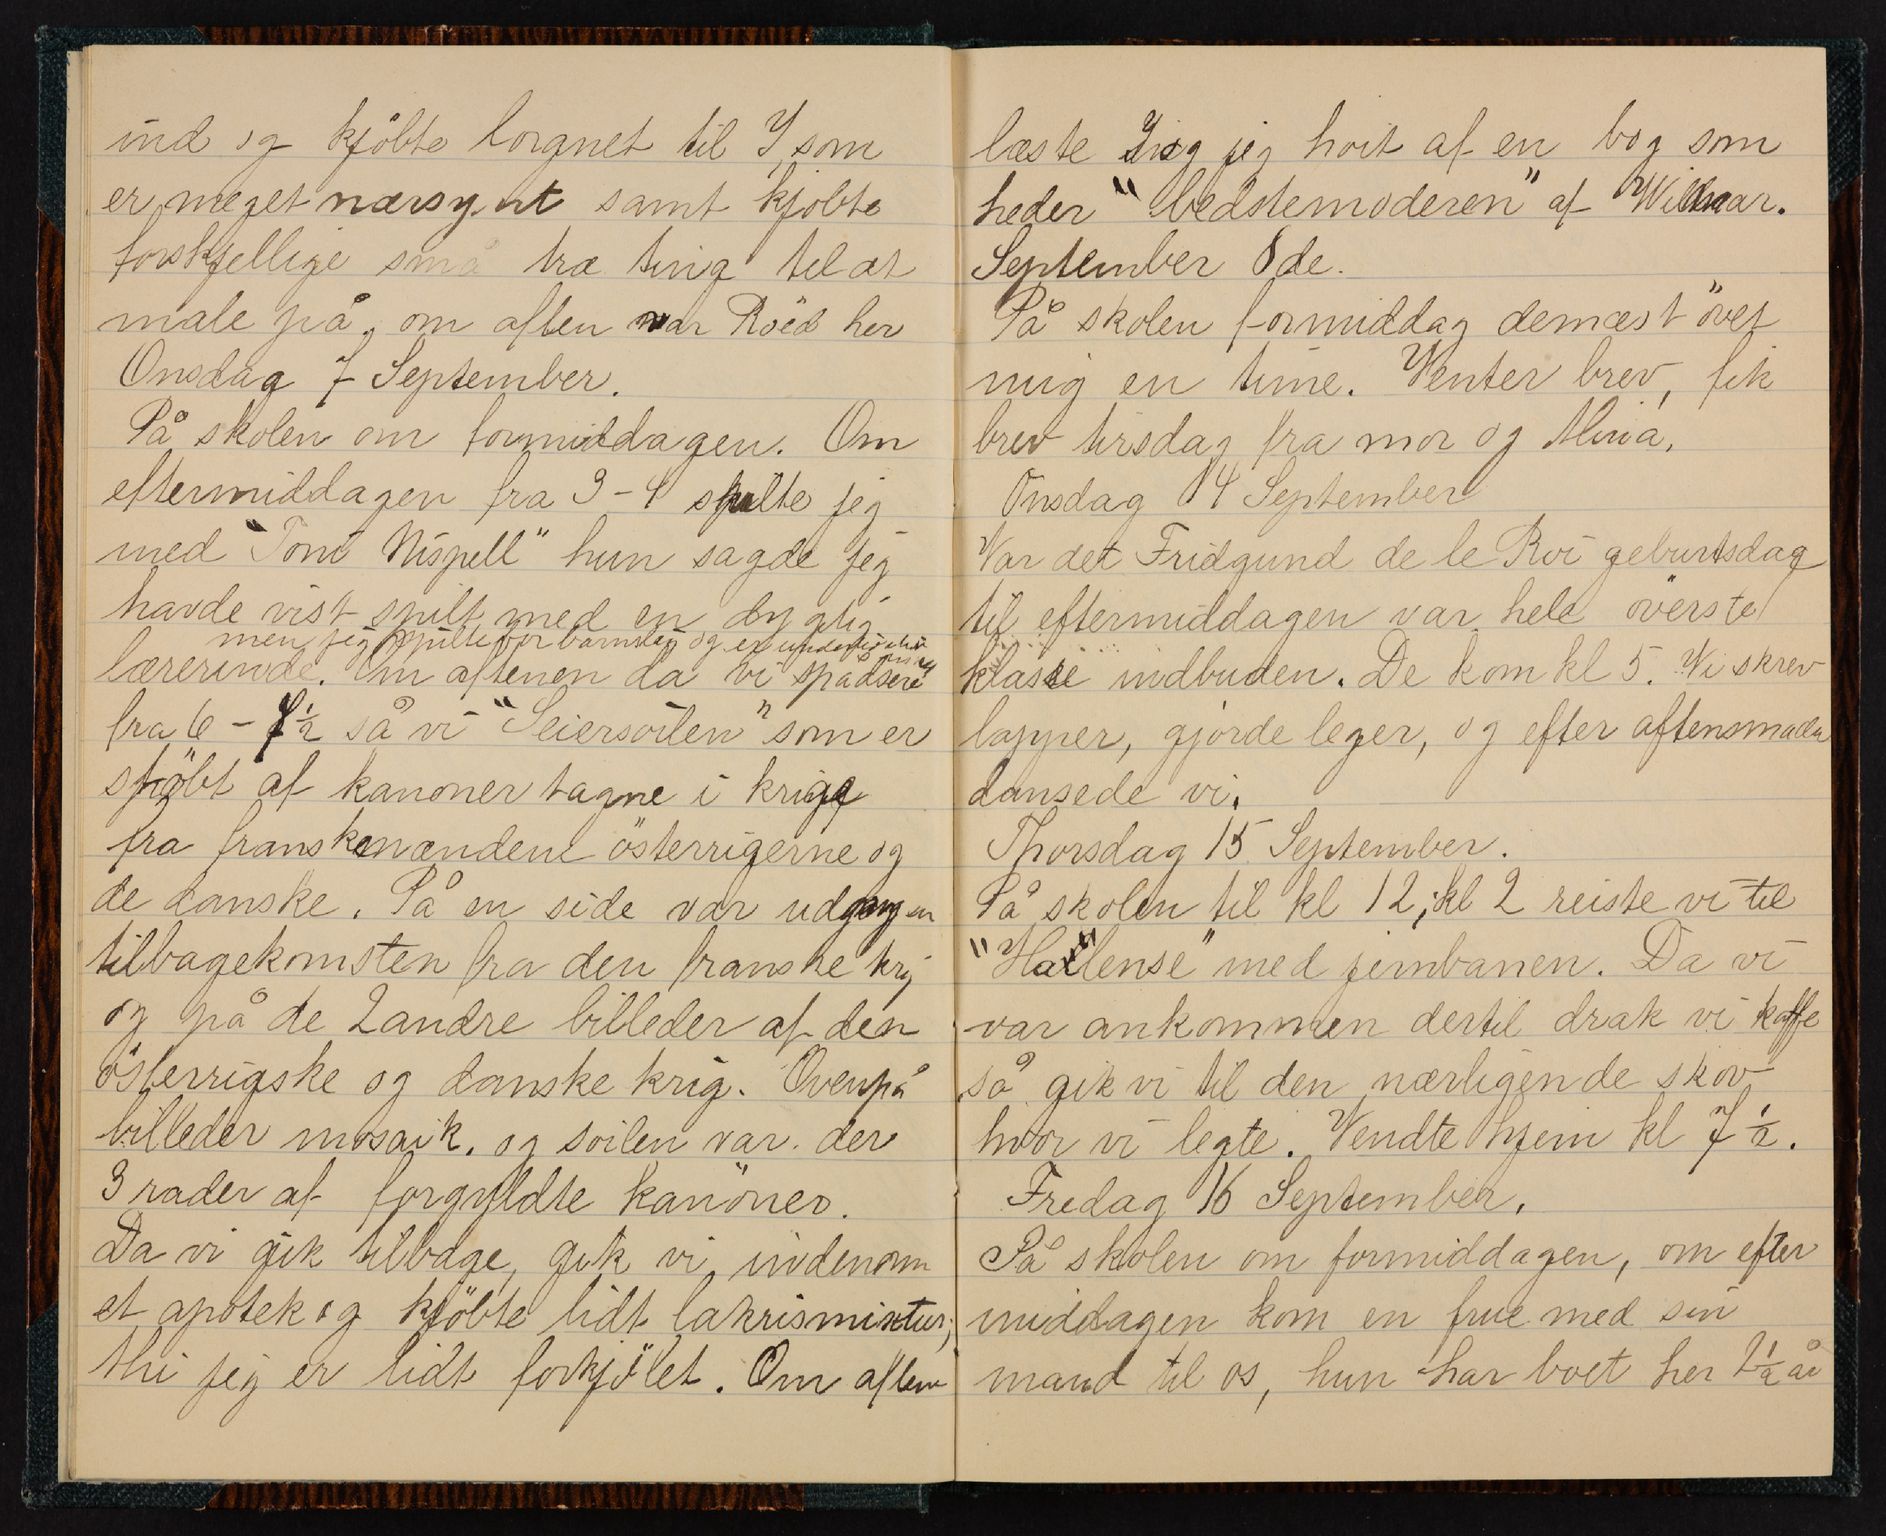 ind og kjöbte lorgnet til I, som
er meget nærsynt samt kjöbte
forskjellige små træ ting til at
male på, om aften var Röed her
Onsdag 7 September.
På skolen om formiddagen. Om
eftermiddagen fra 3-4 spilte jeg
med "Toni Nispell" hun sagde jeg
havde vist spilt med en dygtig
men jeg spilte for barnslig og
lærerinde. Om aftenen da vi spadsere
fra 6 - 7½ så vi "Seiersöilen" som er
stöbt af kanoner tagne i krige
fra franskmændene österrigerne og
de danske. På en side var udgangen
tilbagekomsten fra den franske krig
og på de 2 andre billeder af den
österrigske og danske krig. Ovenpå
billeder mosaik. og söilen var der
3 rader af forgyldte kanöner.
Da vi gik tilbage, gik vi indenom
et apotek og kjöbte lidt lakrismixtur;
thi jeg er lidt forkjölet. Om aften
læste I og jeg hoit af en bog som
heder "bedstemoderen" af Wilmar.
September 8de.
På skolen formiddag demæst övet
mig en time. Venter brev, fik
brev tirsdag fra mor og Alvia.
Onsdag 14 September
Var det Fridgund de le Roi geburtsdag
til eftermiddagen var hele överste
klasse indbuden. De kom kl 5. Vi skrev
lapper, gjorde leger, og efter aftensmaden
dansede vi.
Thorsdag 15 September.
På skolen til kl 12; kl 2 reiste vi til
"Hallense" med jernbanen. Da vi
var ankommen dertil drak vi kaffe
så gik vi til den nærligende skov
hvor vi legte. Vendte hjem kl 7½.
Fredag 16 September.
På skolen om formiddagen, om efter
middagen kom en frue med sin
mand til os, hun har boet her 2½ år